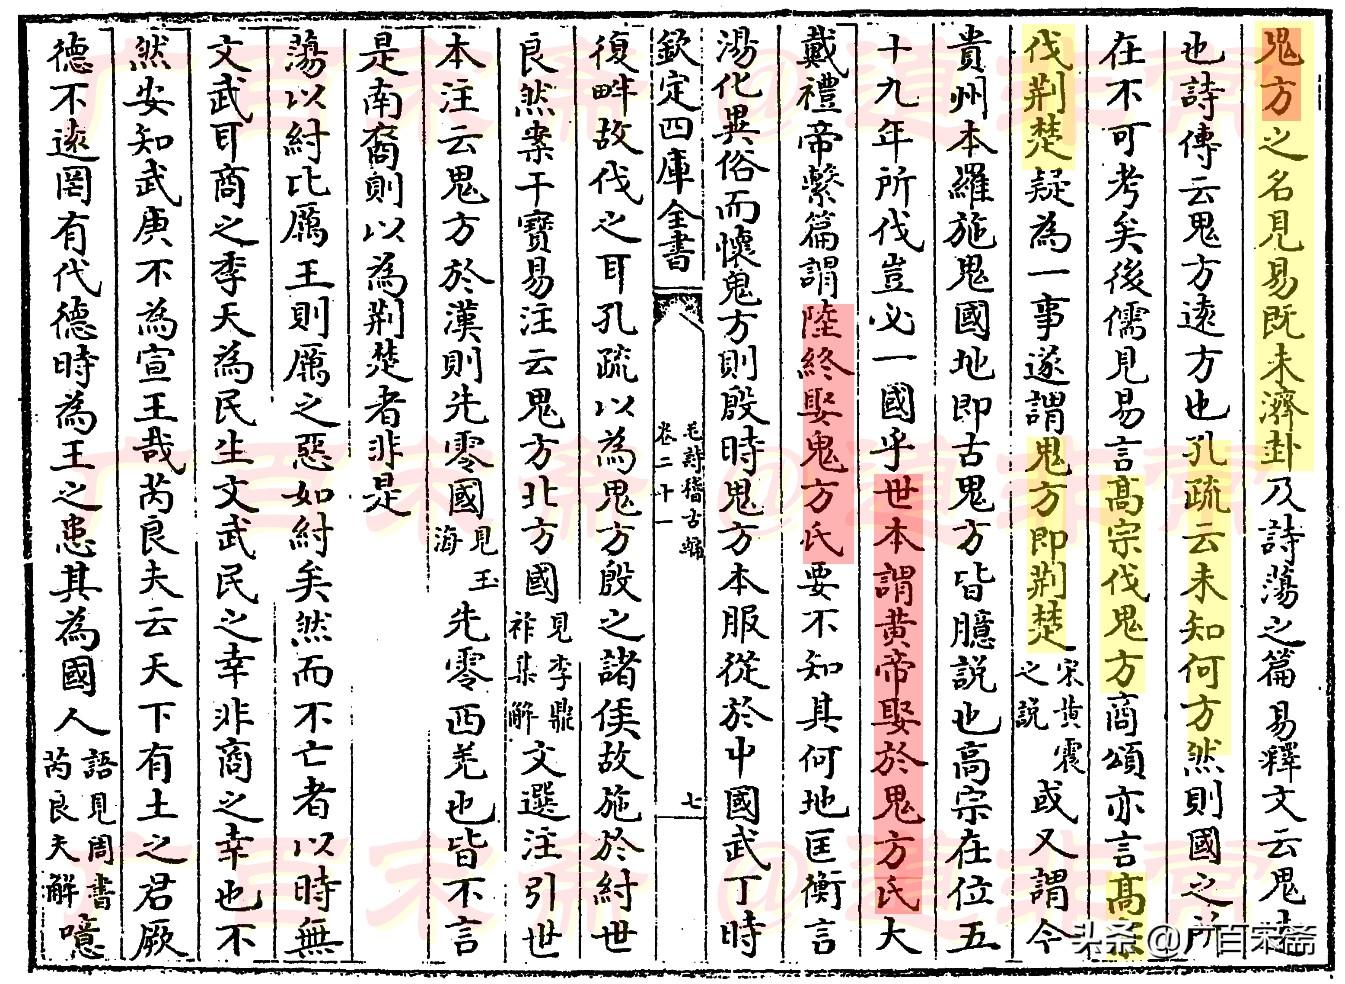 鬼方之名見易既未濟卦及詩蕩之篇易釋文云鬼方
也詩傳云鬼方遠方也孔疏云未知何方然則國之所
在不可考矣後儒見易言高宗伐鬼方商頌亦言高宗
伐荆楚疑為一事遂謂鬼方即荆楚宋黄震之説或又謂今
貴州本羅施鬼國地即古鬼方皆臆説也高宗在位五
十九年所伐豈必一國乎世本謂黄帝娶於鬼方氏大
戴禮帝繫篇謂陸終娶鬼方氏要不知其何地匡衡言
湯化異俗而懷鬼方則殷時鬼方本服從於中國武丁時
欽定四庫全書
毛詩稽古編
卷二十一
七
復畔故伐之耳孔疏以為鬼方殷之諸侯故施於紂世
良然案干寶易注云鬼方北方國見李鼎祚集解文選注引世
本注云鬼方於漢則先零國見玉海先零西羌也皆不言
是南裔則以為荆楚者非是
蕩以紂比厲王則厲之惡如紂矣然而不亡者以時無
文武耳商之季天為民生文武民之幸非商之幸也不
然安知武庚不為宣王哉芮良夫云天下有土之君厥
德不遠罔有代德時為王之患其為國人語見周書芮良夫解噫
头条@广百宋斋